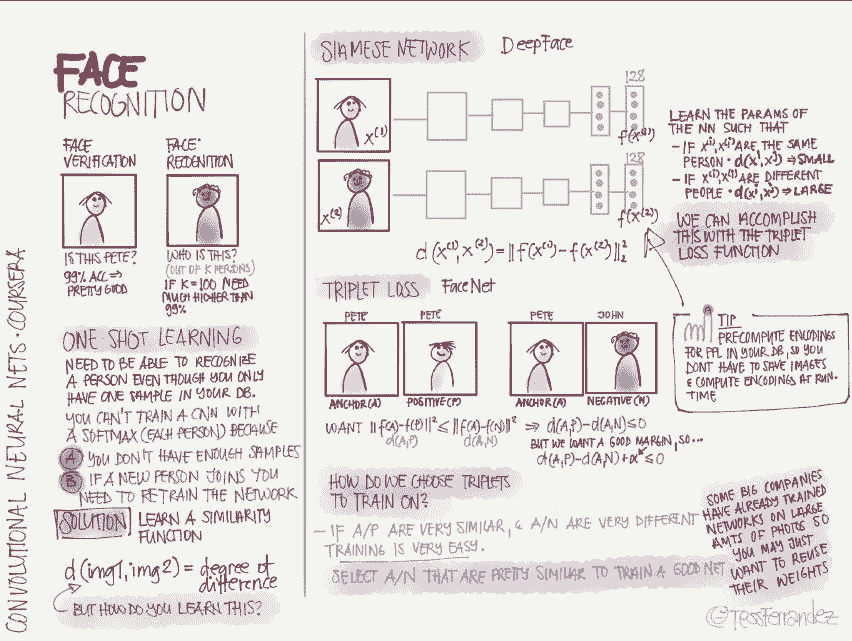 CONVOLUTIONAL NEURAL NETS · COURSERA
FACE
RECOGNITION
FACE
VERIFICATION
IS THIS PETE?
99% ACC ⇒
PRETTY GOOD
FACE
RECOGNITION
WHO IS THIS?
(OUT OF K PERSONS)
IF K=100 NEED
MUCH HIGHER THAN
99%
ONE SHOT LEARNING
NEED TO BE ABLE TO RECOGNIZE
A PERSON EVEN THOUGH YOU ONLY
HAVE ONE SAMPLE IN YOUR DB.
YOU CAN'T TRAIN A CNN WITH
A SOFTMAX (EACH PERSON) BECAUSE
A YOU DON'T HAVE ENOUGH SAMPLES
B IF A NEW PERSON JOINS YOU
NEED TO RETRAIN THE NETWORK
SOLUTION LEARN A SIMILARITY
FUNCTION
d(img1, img2) = degree of
difference
BUT HOW DO YOU LEARN THIS?
SIAMESE NETWORK DeepFace
x⁽¹⁾
128
f(x⁽¹⁾)
x⁽²⁾
128
f(x⁽²⁾)
d(x⁽¹⁾, x⁽²⁾) = ||f(x⁽¹⁾) - f(x⁽²⁾)||₂²
LEARN THE PARAMS OF
THE NN SUCH THAT
- IF x⁽ⁱ⁾, x⁽ʲ⁾ ARE THE SAME
PERSON · d(xⁱ, xʲ) ⇒ SMALL
- IF x⁽ⁱ⁾ x⁽ʲ⁾ ARE DIFFERENT
PEOPLE · d(xⁱ, xʲ) ⇒ LARGE
WE CAN ACCOMPLISH
THIS WITH THE TRIPLET
LOSS FUNCTION
TIP
PRECOMPUTE ENCODINGS
FOR PPL IN YOUR DB, SO YOU
DONT HAVE TO SAVE IMAGES
& COMPUTE ENCODINGS AT RUN-
TIME
TRIPLET LOSS FaceNet
PETE PETE PETE JOHN
ANCHOR(A) POSITIVE(P) ANCHOR(A) NEGATIVE(N)
WANT ||f(A)-f(P)||² ≤ ||f(A)-f(N)||² ⇒ d(A,P)-d(A,N) ≤ 0
d(A,P) d(A,N)
BUT WE WANT A GOOD MARGIN, SO...
d(A,P)-d(A,N)+α ≤ 0
HOW DO WE CHOOSE TRIPLETS
TO TRAIN ON?
- IF A/P ARE VERY SIMILAR, & A/N ARE VERY DIFFERENT
TRAINING IS VERY EASY.
SELECT A/N THAT ARE PRETTY SIMILAR TO TRAIN A GOOD NET
SOME BIG COMPANIES
HAVE ALREADY TRAINED
NETWORKS ON LARGE
AMTS OF PHOTOS SO
YOU MAY JUST
WANT TO REUSE
THEIR WEIGHTS
@TessFerrandez